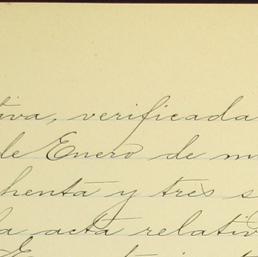 tiva, verificada
de Enero de m
henta y tres s
la acta relativ